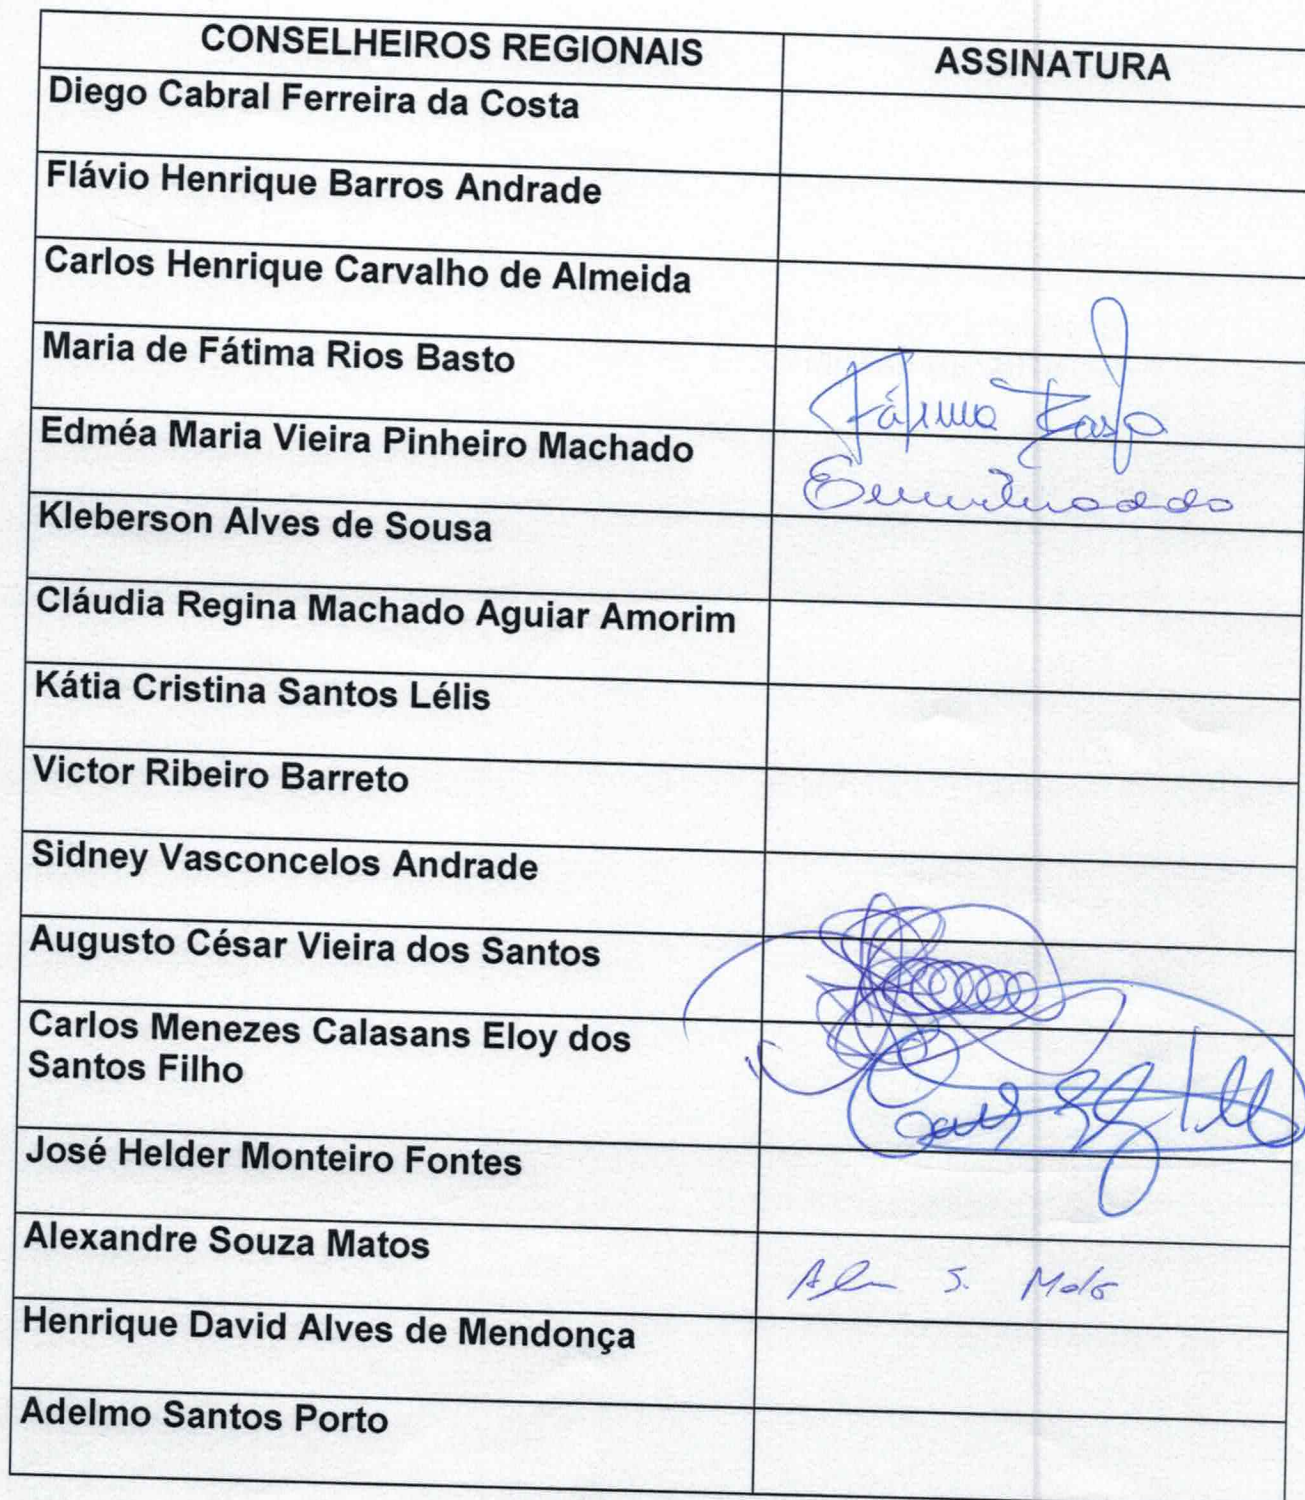 CONSELHEIROS REGIONAIS
ASSINATURA
Diego Cabral Ferreira da Costa
Flávio Henrique Barros Andrade
Carlos Henrique Carvalho de Almeida
Maria de Fátima Rios Basto
Fátima Basto
Edméa Maria Vieira Pinheiro Machado
Kleberson Alves de Sousa
Cláudia Regina Machado Aguiar Amorim
Kátia Cristina Santos Lélis
Victor Ribeiro Barreto
Sidney Vasconcelos Andrade
Augusto César Vieira dos Santos
Carlos Menezes Calasans Eloy dos
Santos Filho
José Helder Monteiro Fontes
Alexandre Souza Matos
S.
Henrique David Alves de Mendonça
Adelmo Santos Porto